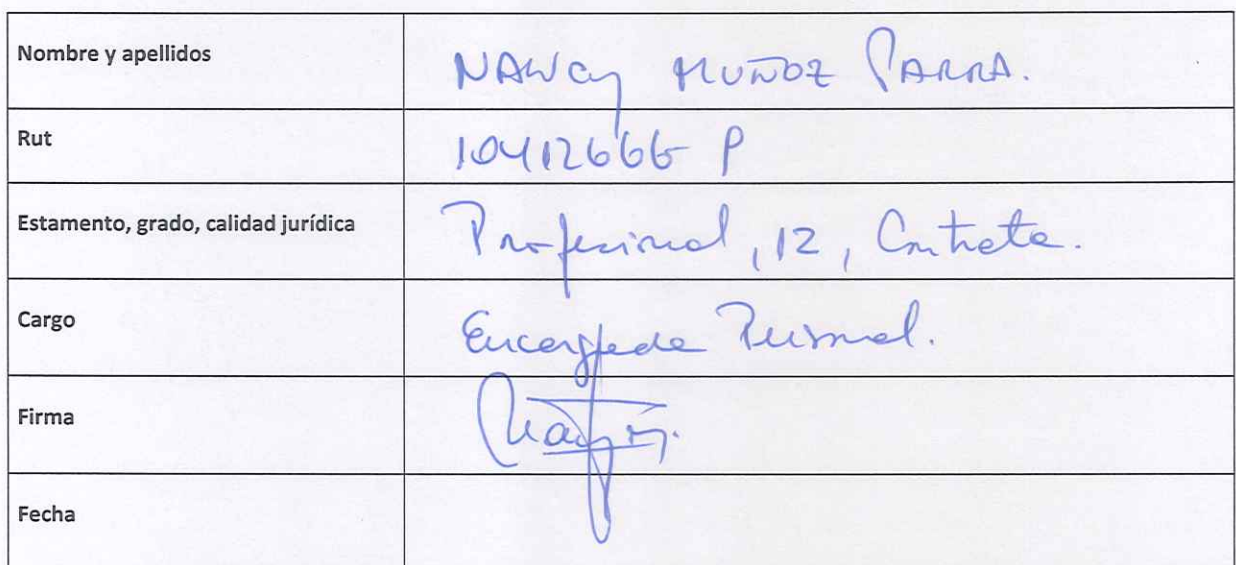 Nombre y apellidos NANCY MUÑOZ PARRA.
Rut 10412666 P
Estamento, grado, calidad jurídica Profesional, 12, Contrata.
Cargo Encargada Personal.
Firma
Fecha